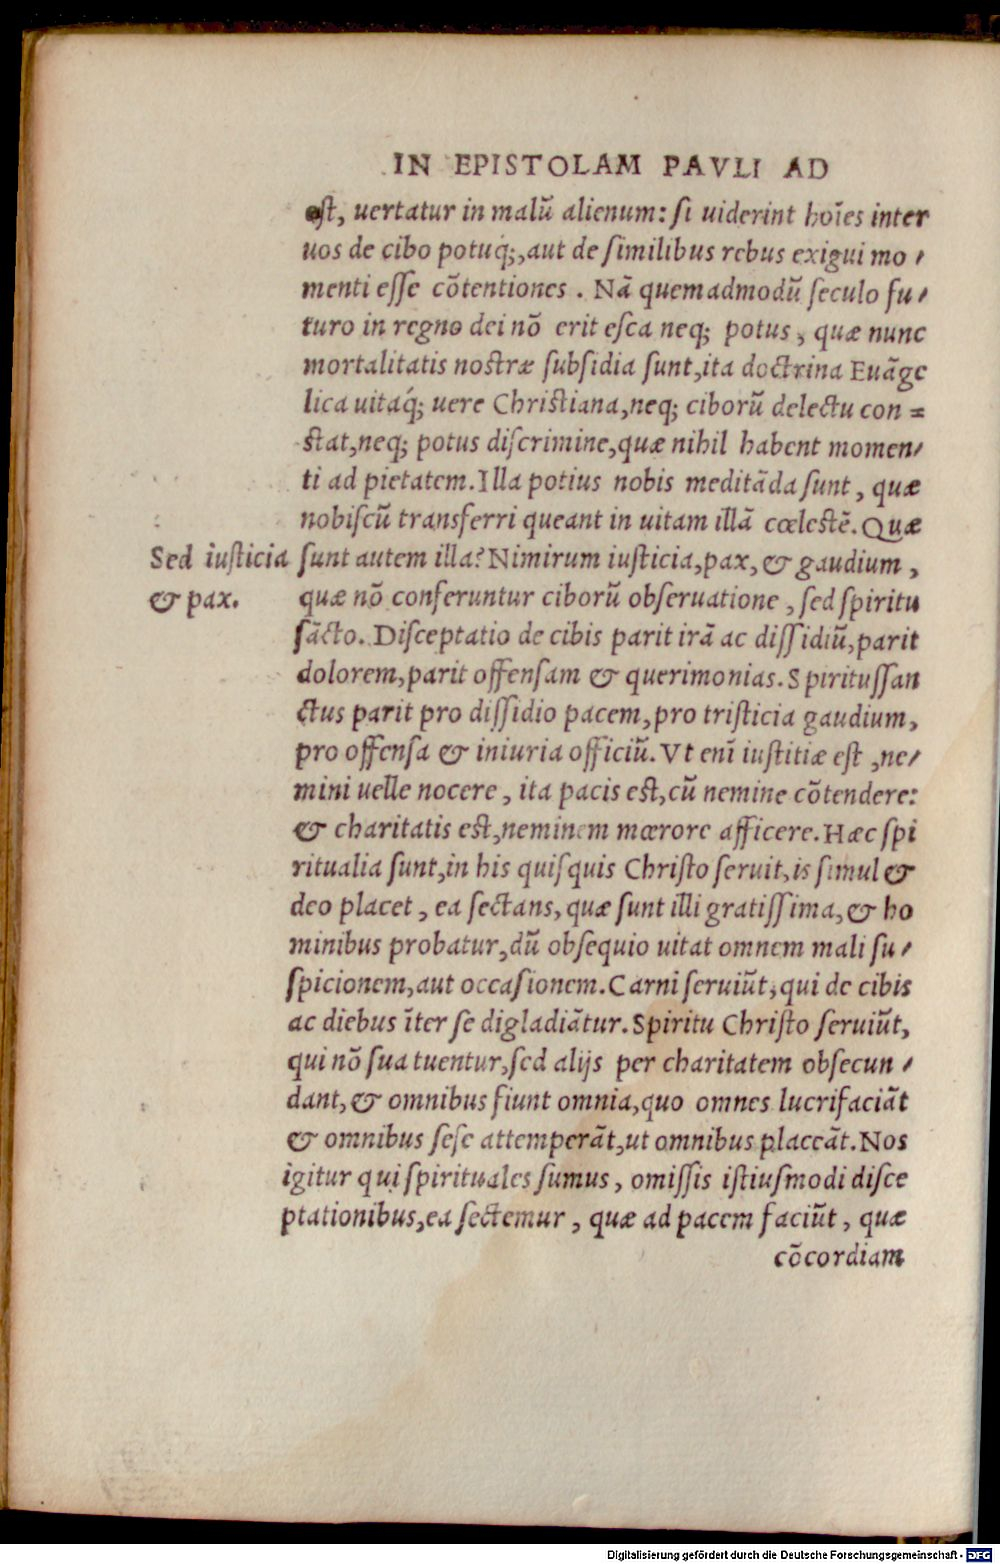 IN EPISTOLAM PAVLI AD
est, uertatur in malũ alienum: ſi uiderint hoĩes inter
uos de cibo potuq́;, aut de ſimilibus rebus exigui mo⸗
menti eſſe cõtentiones. Nã quemadmodũ ſeculo fu⸗
turo in regno dei nõ erit eſca neq; potus, quæ nunc
mortalitatis noſtræ ſubſidia ſunt, ita doctrina Euãge
lica uitáq; uere Chriſtiana, neq; ciborũ delectu con⸗
ſtat, neq; potus diſcrimine, quæ nihil habent momen⸗
ti ad pietatem. Illa potius nobis meditãda ſunt, quæ
nobiſcũ transferri queant in uitam illã cœleſtẽ. Quæ
Sed iuſticia ſunt autem illa? Nimirum iuſticia, pax, & gaudium,
& pax. quæ nõ conferuntur ciborũ obſeruatione, ſed ſpiritu
ſãcto. Diſceptatio de cibis parit irã ac diſſidiũ, parit
dolorem, parit offenſam & querimonias. Spirituſſan
ctus parit pro diſſidio pacem, pro triſticia gaudium,
pro offenſa & iniuria officiũ. Vt enĩ iuſtitiæ eſt, ne⸗
mini uelle nocere, ita pacis eſt, cũ nemine cõtendere:
& charitatis eſt, neminem mœrore afficere. Hæc ſpi
ritualia ſunt, in his quiſquis Chriſto ſeruit, is ſimul &
deo placet, ea ſectans, quæ ſunt illi gratiſſima, & ho
minibus probatur, dũ obſequio uitat omnem mali ſu⸗
ſpicionem, aut occaſionem. Carni ſeruiũt, qui de cibis
ac diebus ĩter ſe digladiãtur. Spiritu Chriſto ſeruiũt,
qui nõ ſua tuentur, ſed alijs per charitatem obſecun⸗
dant, & omnibus fiunt omnia, quo omnes lucrifaciãt
& omnibus ſeſe attemperãt, ut omnibus placeãt. Nos
igitur qui ſpirituales ſumus, omiſſis iſtiuſmodi diſce
ptationibus, ea ſectemur, quæ ad pacem faciũt, quæ
cõcordiam
Digitalisierung gefördert durch die Deutsche Forschungsgemeinschaft - DFG